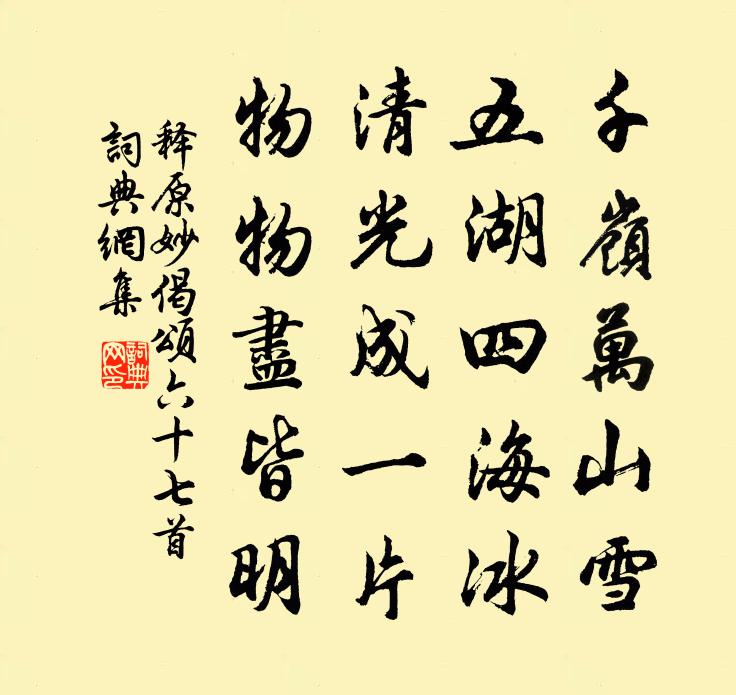 千嶺萬山雪
五湖四海冰
清光成一片
物物盡皆明
释原妙偈頌六十七首
詞典網集
詞典
网印